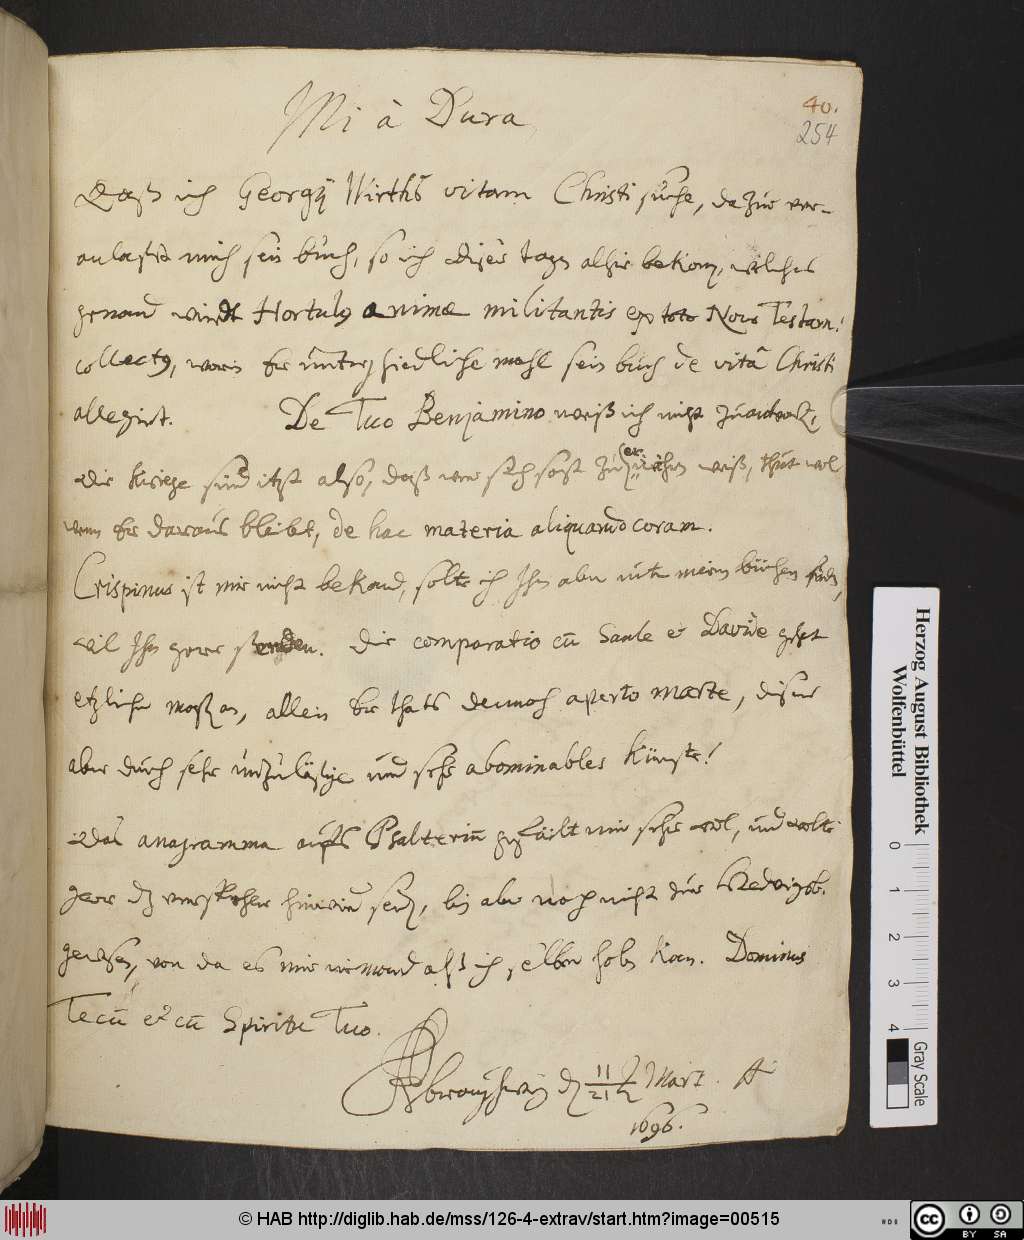 Mi à Dura
40.
254
Daß ich Georgÿ Wirthß vitam Christi suche, dazu ver-
anlaßet mich sein buch, so ich dieser tagen alhie bekom̅, welches
genand wirdt Hortulus animæ militantis ex toto Novo Testam:
collectus, worin Er unterschiedliche mahl sein buch de vitâ Christi
allegirt. De Tuo Benjamino weiß ich nicht
die Kriege sind itzt also, daß wer sich sonst zu ernähren weiß, thut wol
wenn Er daraus bleibt, de hac materia aliquando coram.
Crispinus ist mir nicht bekand, solte ich Ihn aber unter meinen büchern finden,
wil Ihn gerne senden. Die comparatio cū Saule et Davide gehet
etzlicher maßzen, allein Er thats dennoch aperto marte, dieser
aber durch sehr unzuläßige und sehr abominables Künste!
Das anagramma aufs Psalteriū gefält mir sehr wol, und wolte
gern dz hinwied send, bin aber noch nicht zur Hedwigsb.
gewesen, von da es mir niemand alß ich selber holen kan. Dominus
Tecū et cū Spiritu Tuo.
11/21 Mart. A
1696.
Herzog August Bibliothek
Wolfenbüttel
0 1 2 3 4
Gray Scale
© HAB http://diglib.hab.de/mss/126-4-extrav/start.htm?image=00515
cc BY SA